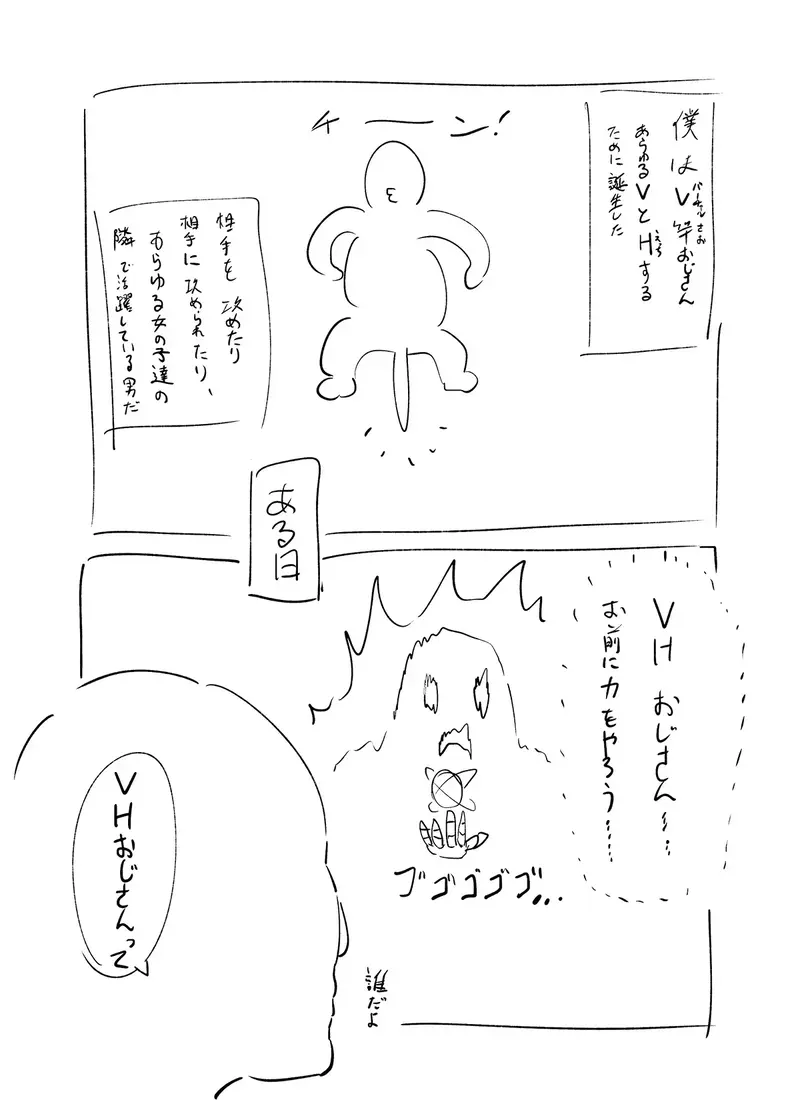 僕はV竿おじさん
バーチャル さお
あらゆるVとHする
えち
ために誕生した
チーン!
相手を攻めたり
相手に攻められたり、
あらゆる女の子達の
隣で活躍している男だ
ある日
VHおじさん…
お前に力をやろう……
ゴゴゴゴゴ…
VHおじさんって
誰だよ